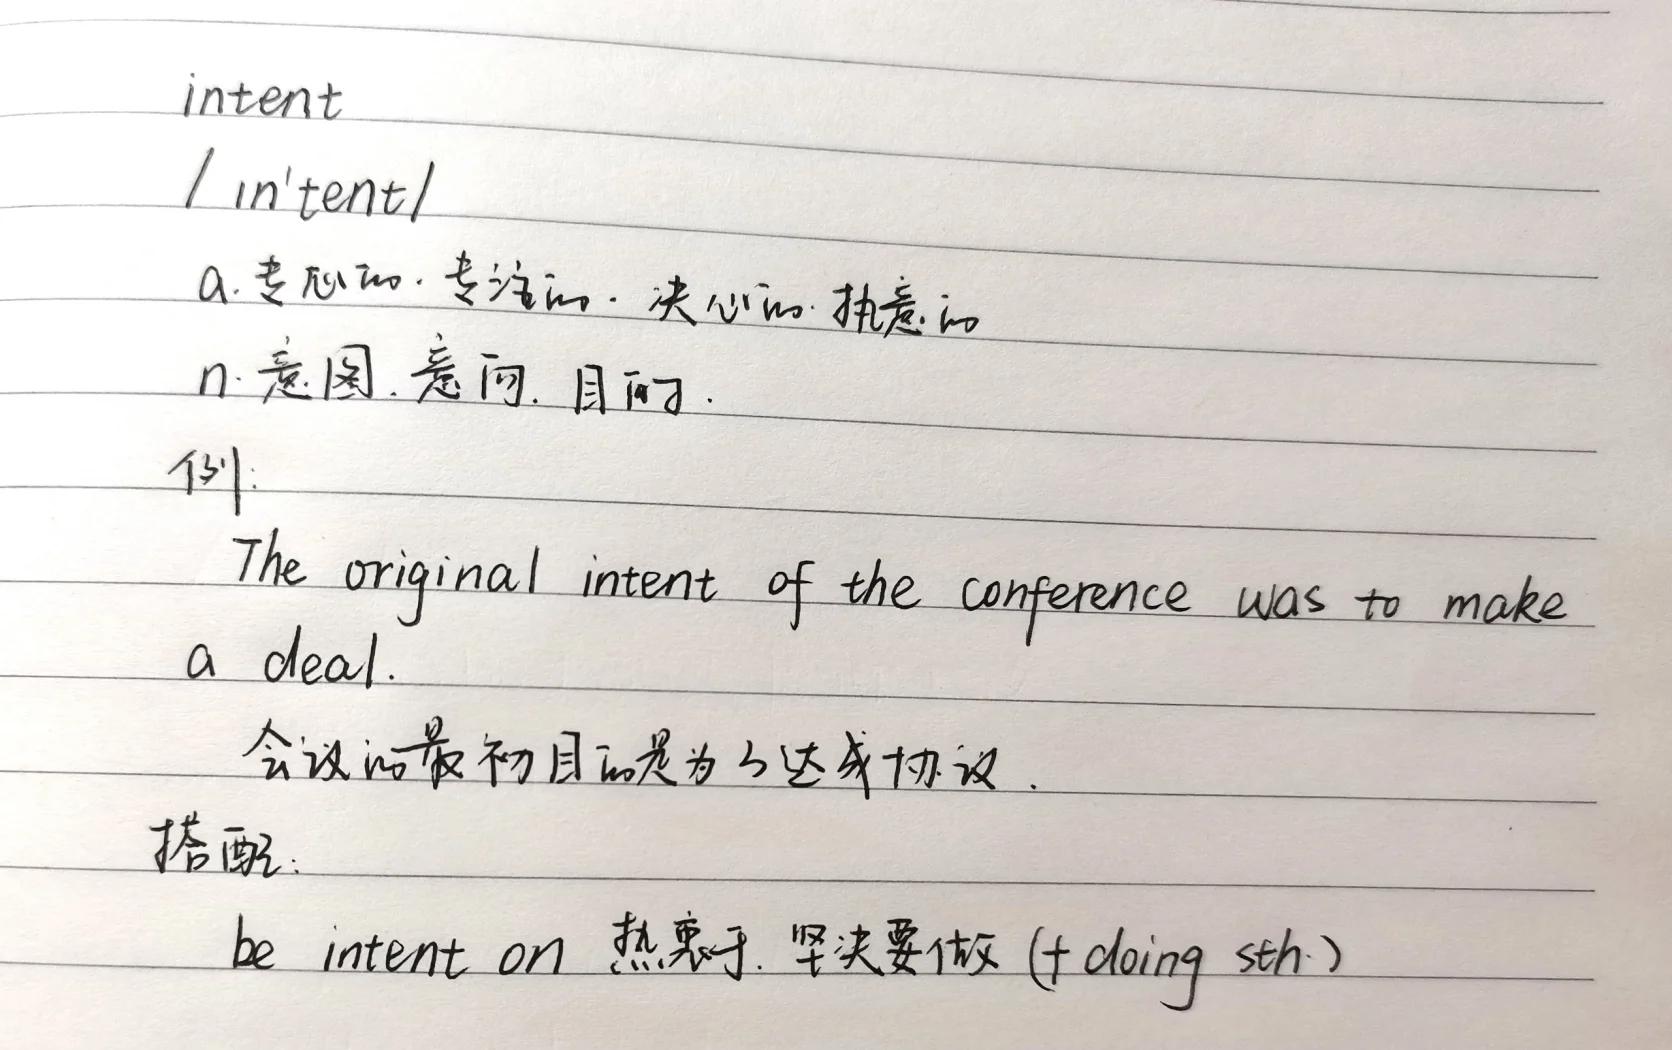 intent
/ɪn'tent/
a.专心的.专注的.决心的.执意的
n.意图.意向.目的.
例:
The original intent of the conference was to make
a deal.
会议的最初目的是为了达成协议.
搭配:
be intent on 热衷于.坚决要做(+doing sth.)